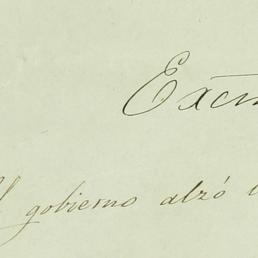 Excm
El gobierno alzó l